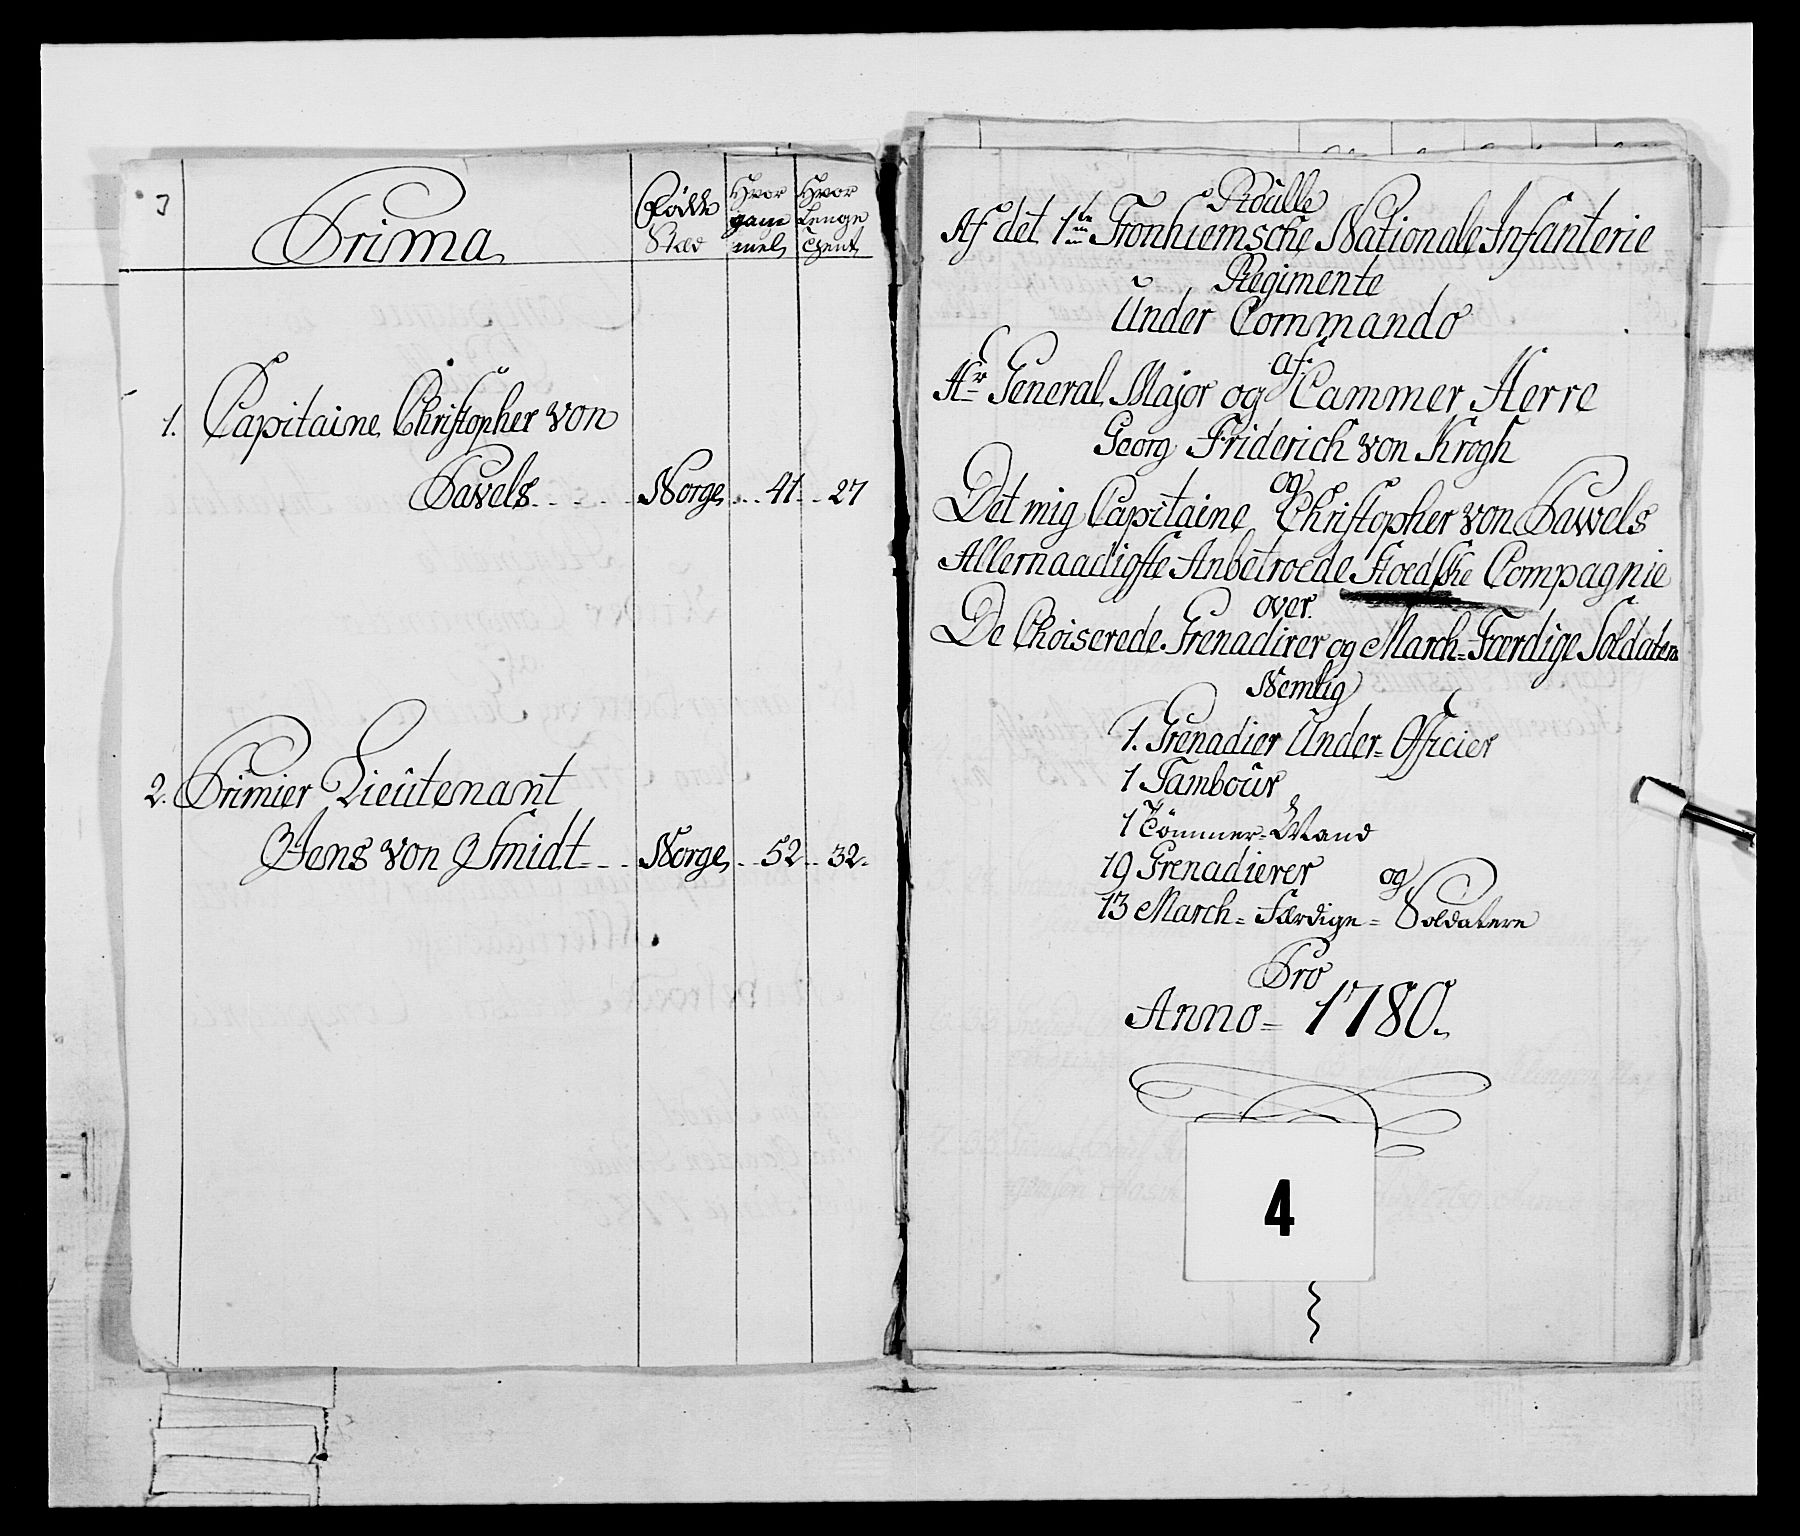 Prima
Fødde Stæd
Hvor gam mel
Hvor Lenge tient
1. Capitaine Christopher von
Pavels - - - Norge - - 41 - - 27
2. Primier Lieutenant
Jens von Smidt - - - Norge - - 52 - - 32.
Roulle
Af det 1te Tronhiemsche Nationale Infanterie
Regimente
Under Commando
af
Hr General Major og Cammer Herre
Georg Friderich von Krogh
og
Det mig Capitaine Christopher von Pawels
Allernaadigste Anbetroede Stoedske Compagnie
over
De Choiserede Grenadirer og March-Færdige Soldater
Nemlig
1. Grenadier Under-Officier
1 Tambour
1 Tömmer-Mand
19 Grenadierer og
13 March-Færdige-Soldatere
Pro
Anno = 1780.
4